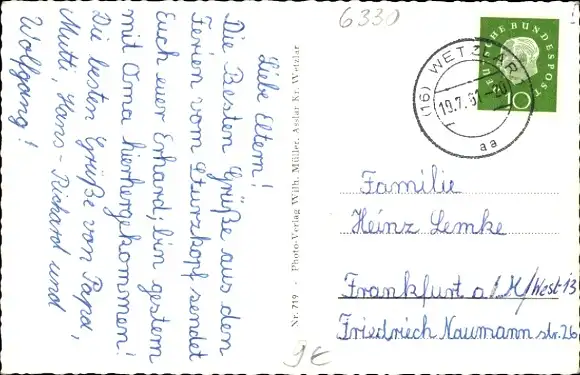 Liebe Eltern!
Die Besten Grüße aus den
Ferien vom Sturzkopf sendet
Euch euer Erhard; bin gestern
mit Oma hierhergekommen!
Die besten Grüße von Papa,
Mutti, Hans-Richard und
Wolfgang!
Nr. 719 - Photo-Verlag Wilh. Müller, Asslar Kr. Wetzlar
6330
DEUTSCHE BUNDESPOST
10
(16) WETZLAR
19.7.61-20
aa
Familie
Heinz Lemke
Frankfurt a/M/West-13
Friedriech Naumann str. 26
9€